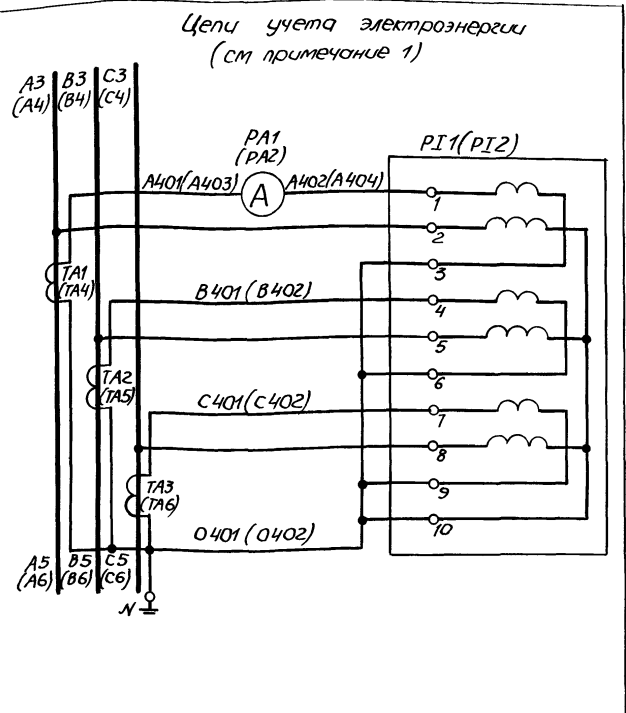 Цепи учета электроэнергии
(см примечание 1)
A3 B3 C3
(A4) (B4) (C4)
PA1
(PA2)
PI1(PI2)
A401(A403)
A
A402(A404)
1
2
3
TA1
(TA4)
B401(B402)
4
5
6
TA2
(TA5)
C401(C402)
7
8
9
TA3
(TA6)
10
0401(0402)
A5 B5 C5
(A6) (B6) (C6)
N